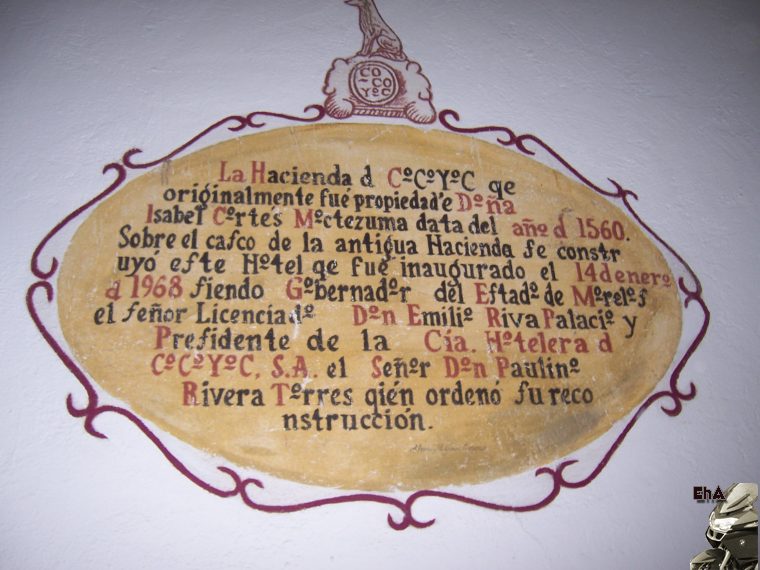 CO
CO
YºC
La Hacienda d CºCºYºC qe
originalmente fué propiedad'e Dºña
Isabel Cºrtés Mºctezuma data del año d 1560.
Sobre el caſco de la antigua Hacienda ſe constr
uyó eſte Hºtel qe fué inaugurado el 14 de enerº
d 1968 ſiendo Gºbernadºr del Eſtadº de Mºrelºs
el ſeñor Licenciadº Dºn Emiliº Riva Palaciº y
Preſidente de la Cía. Hºtelera d
CºCºYºC, S.A. el Señºr Dºn Paulinº
Rivera Tºrres qién ordenó ſu reco
nstrucción.
EhA